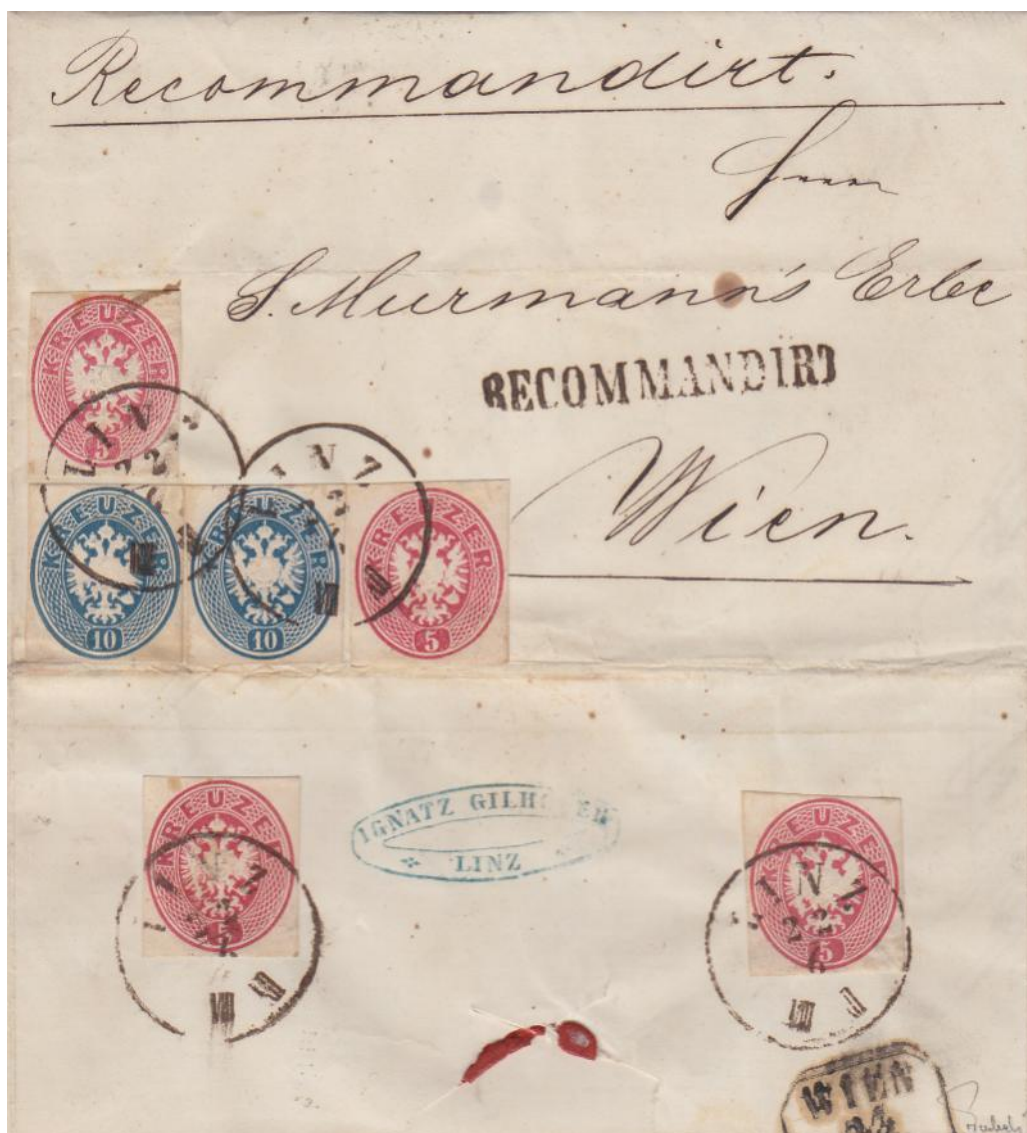 Recommandirt.
Herrn
S. Murmann's Erbe
RECOMMANDIRT
Wien.
KREUZER
5
LINZ
22
KREUZER
10
KREUZER
10
KREUZER
5
LINZ
KREUZER
5
LINZ
IGNATZ GILHOFER
LINZ
KREUZER
5
LINZ
22
6
WIEN
24